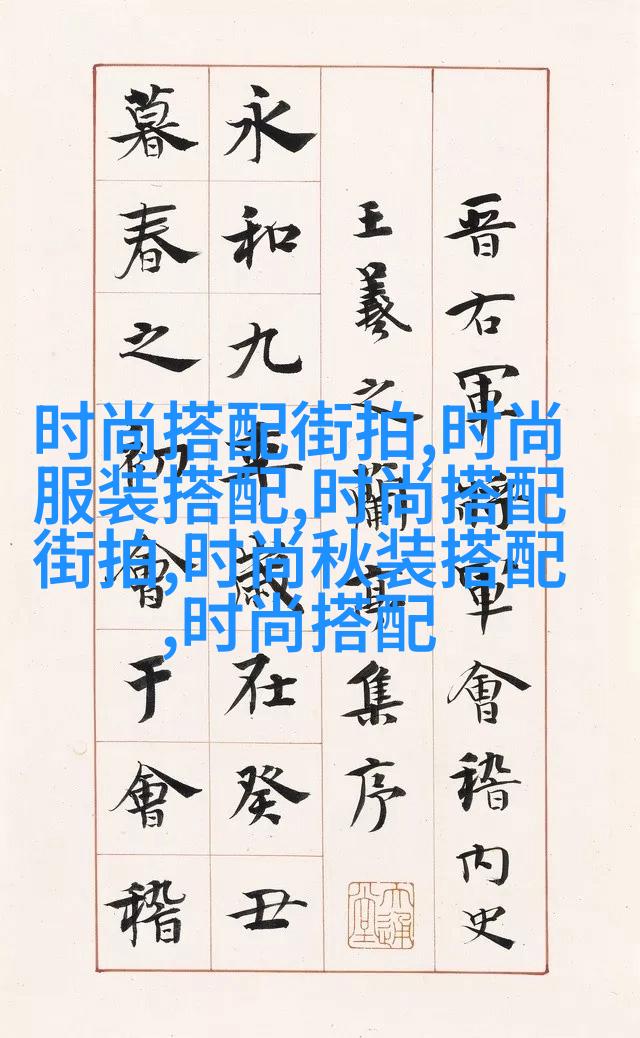 晋右軍將軍會稽内史
王羲之蘭亭集序
永和九年歲在癸丑
暮春之初會于會稽
时尚搭配街拍,时尚
服装搭配,时尚搭配
街拍,时尚秋装搭配
,时尚搭配